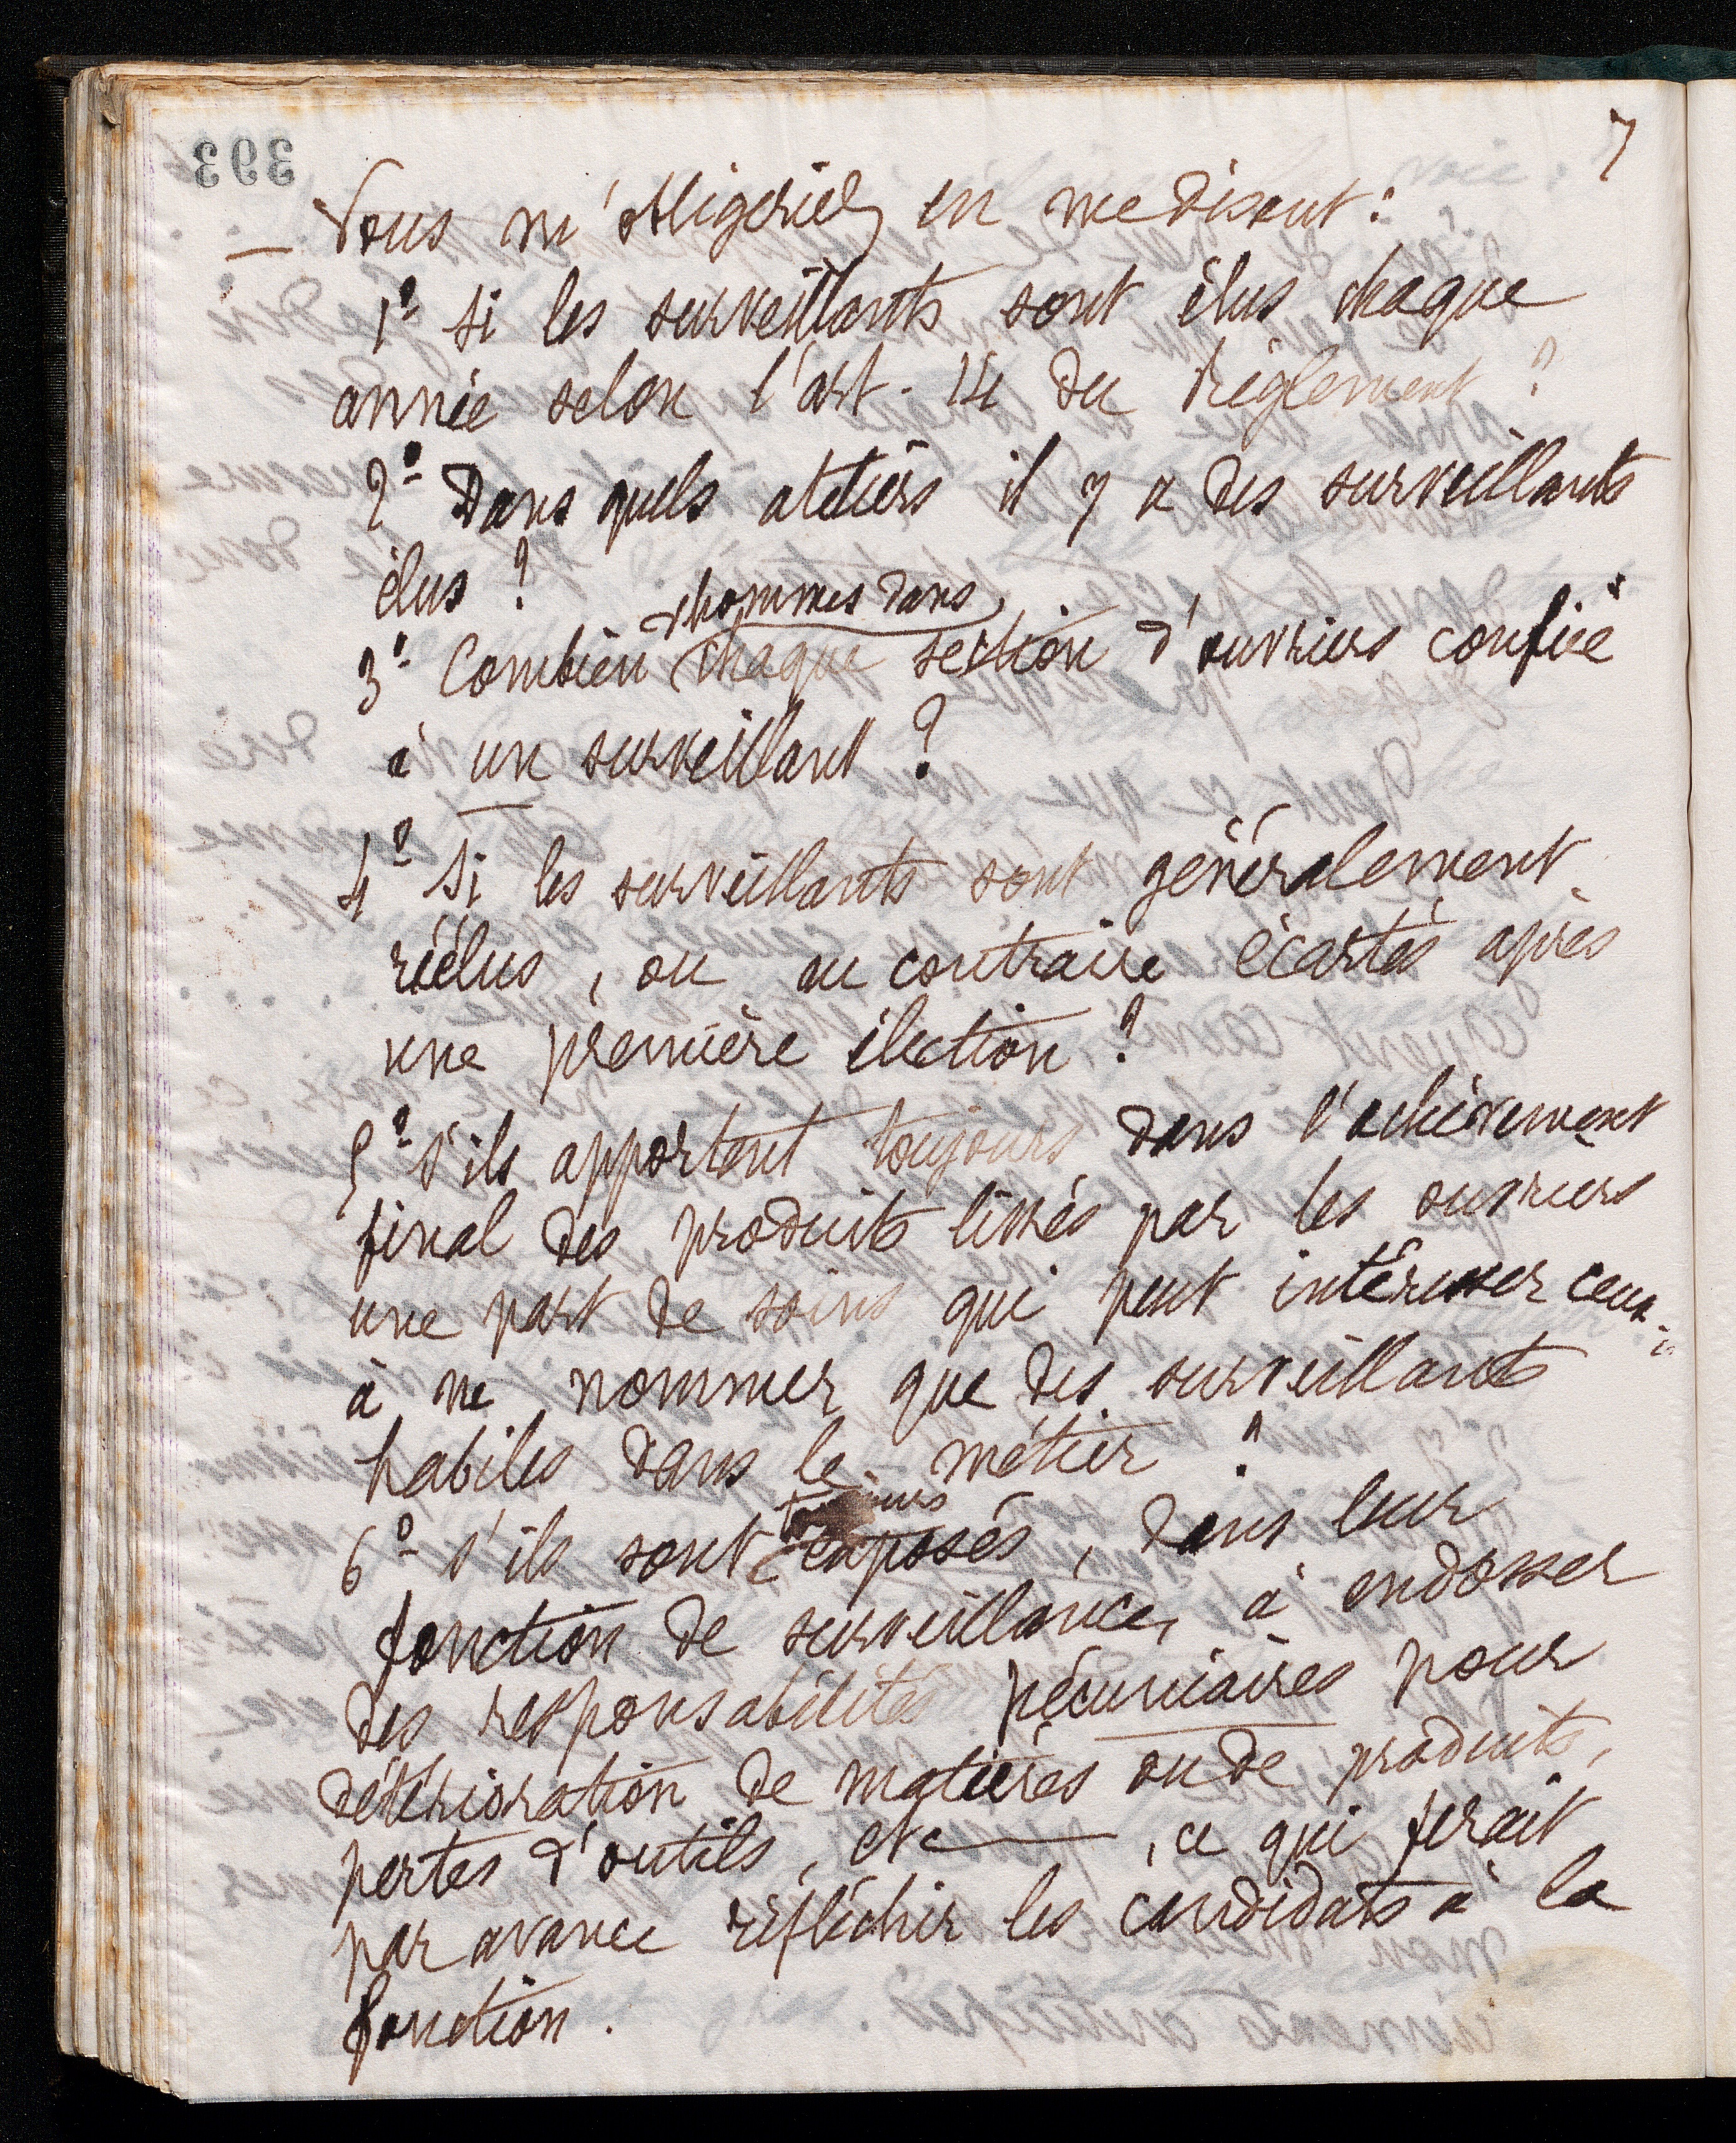 7
393
— Vous m'obligeriez en me disant :
1º Si les surveillants sont élus chaque
année selon l'art. 14 du Règlement ?
2º Dans quels ateliers il y a des surveillants
élus ?
d'hommes dans
3º Combien chaque section d'ouvriers confiée
à un surveillant ?
4º Si les surveillants sont généralement
réélus, ou au contraire écartés après
une première élection ?
5º s'ils apportent toujours dans l'achèvement
final des produits livrés par les ouvriers
une part de soins qui peut intéresser ceux-ci
à ne nommer que des surveillants
habiles dans le métier ?
toujours
6º s'ils sont exposés, dans leur
fonction de surveillance, à endosser
des responsabilités pécuniaires pour
détérioration de matières ou de produits,
pertes d'outils, etc ——, ce qui ferait
par avance réfléchir les candidats à la
fonction.